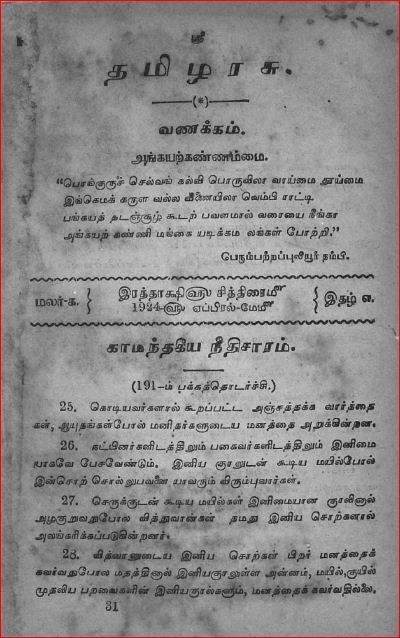 ஸ்ரீ
தமிழரசு.
(*)
வணக்கம்.
அங்கயற்கண்ணம்மை.
“பொங்குருச் செல்வங் கல்வி பொருவிலா வாய்மை தூய்மை
இங்கெமக் கருள வல்ல வீணையிலா வெம்பி ராட்டி
பங்கயத் தடஞ்சூழ் கூடற் பவளமால் வரையை நீங்கா
அங்கயற் கண்ணி மங்கை யடிக்கம லங்கள் போற்றி.”
பெரும்பற்றப்புலியூர் நம்பி.
மலர்-க. இரத்தாக்ஷிஹு சித்திரைமீ இதழ் எ.
1924-ஹு ஏப்பிரல்-மேமீ
காமந்தகிய நீதிசாரம்.
(191-ம் பக்கத்தொடர்ச்சி.)
25. கொடியவர்களால் கூறப்பட்ட அஞ்சத்தக்க வார்த்தை
கள், ஆயுதங்கள்போல் மனிதர்களுடைய மனத்தை அறுக்கின்றன.
26. நட்பினர்களிடத்திலும் பகைவர்களிடத்திலும் இனிமை
யாகவே பேசவேண்டும். இனிய குரலுடன் கூடிய மயில்போல்
இன்சொற் சொல்லுபவனை யாவரும் விரும்புவார்கள்.
27. செருக்குடன் கூடிய மயில்கள் இனிமையான குரலினால்
அழகுறுவதுபோல வித்துவான்கள் தமது இனிய சொற்களால்
அலங்கரிக்கப்படுகின்றனர்.
28. வித்வானுடைய இனிய சொற்கள் பிறர் மனத்தைக்
கவர்வதுபோல மதத்தினால் இனியகுரலுள்ள அன்னம், மயில்,குயில்
முதலிய பறவைகளின் இனியகுரல்களும், மனத்தைக் கவர்வதில்லை.
31